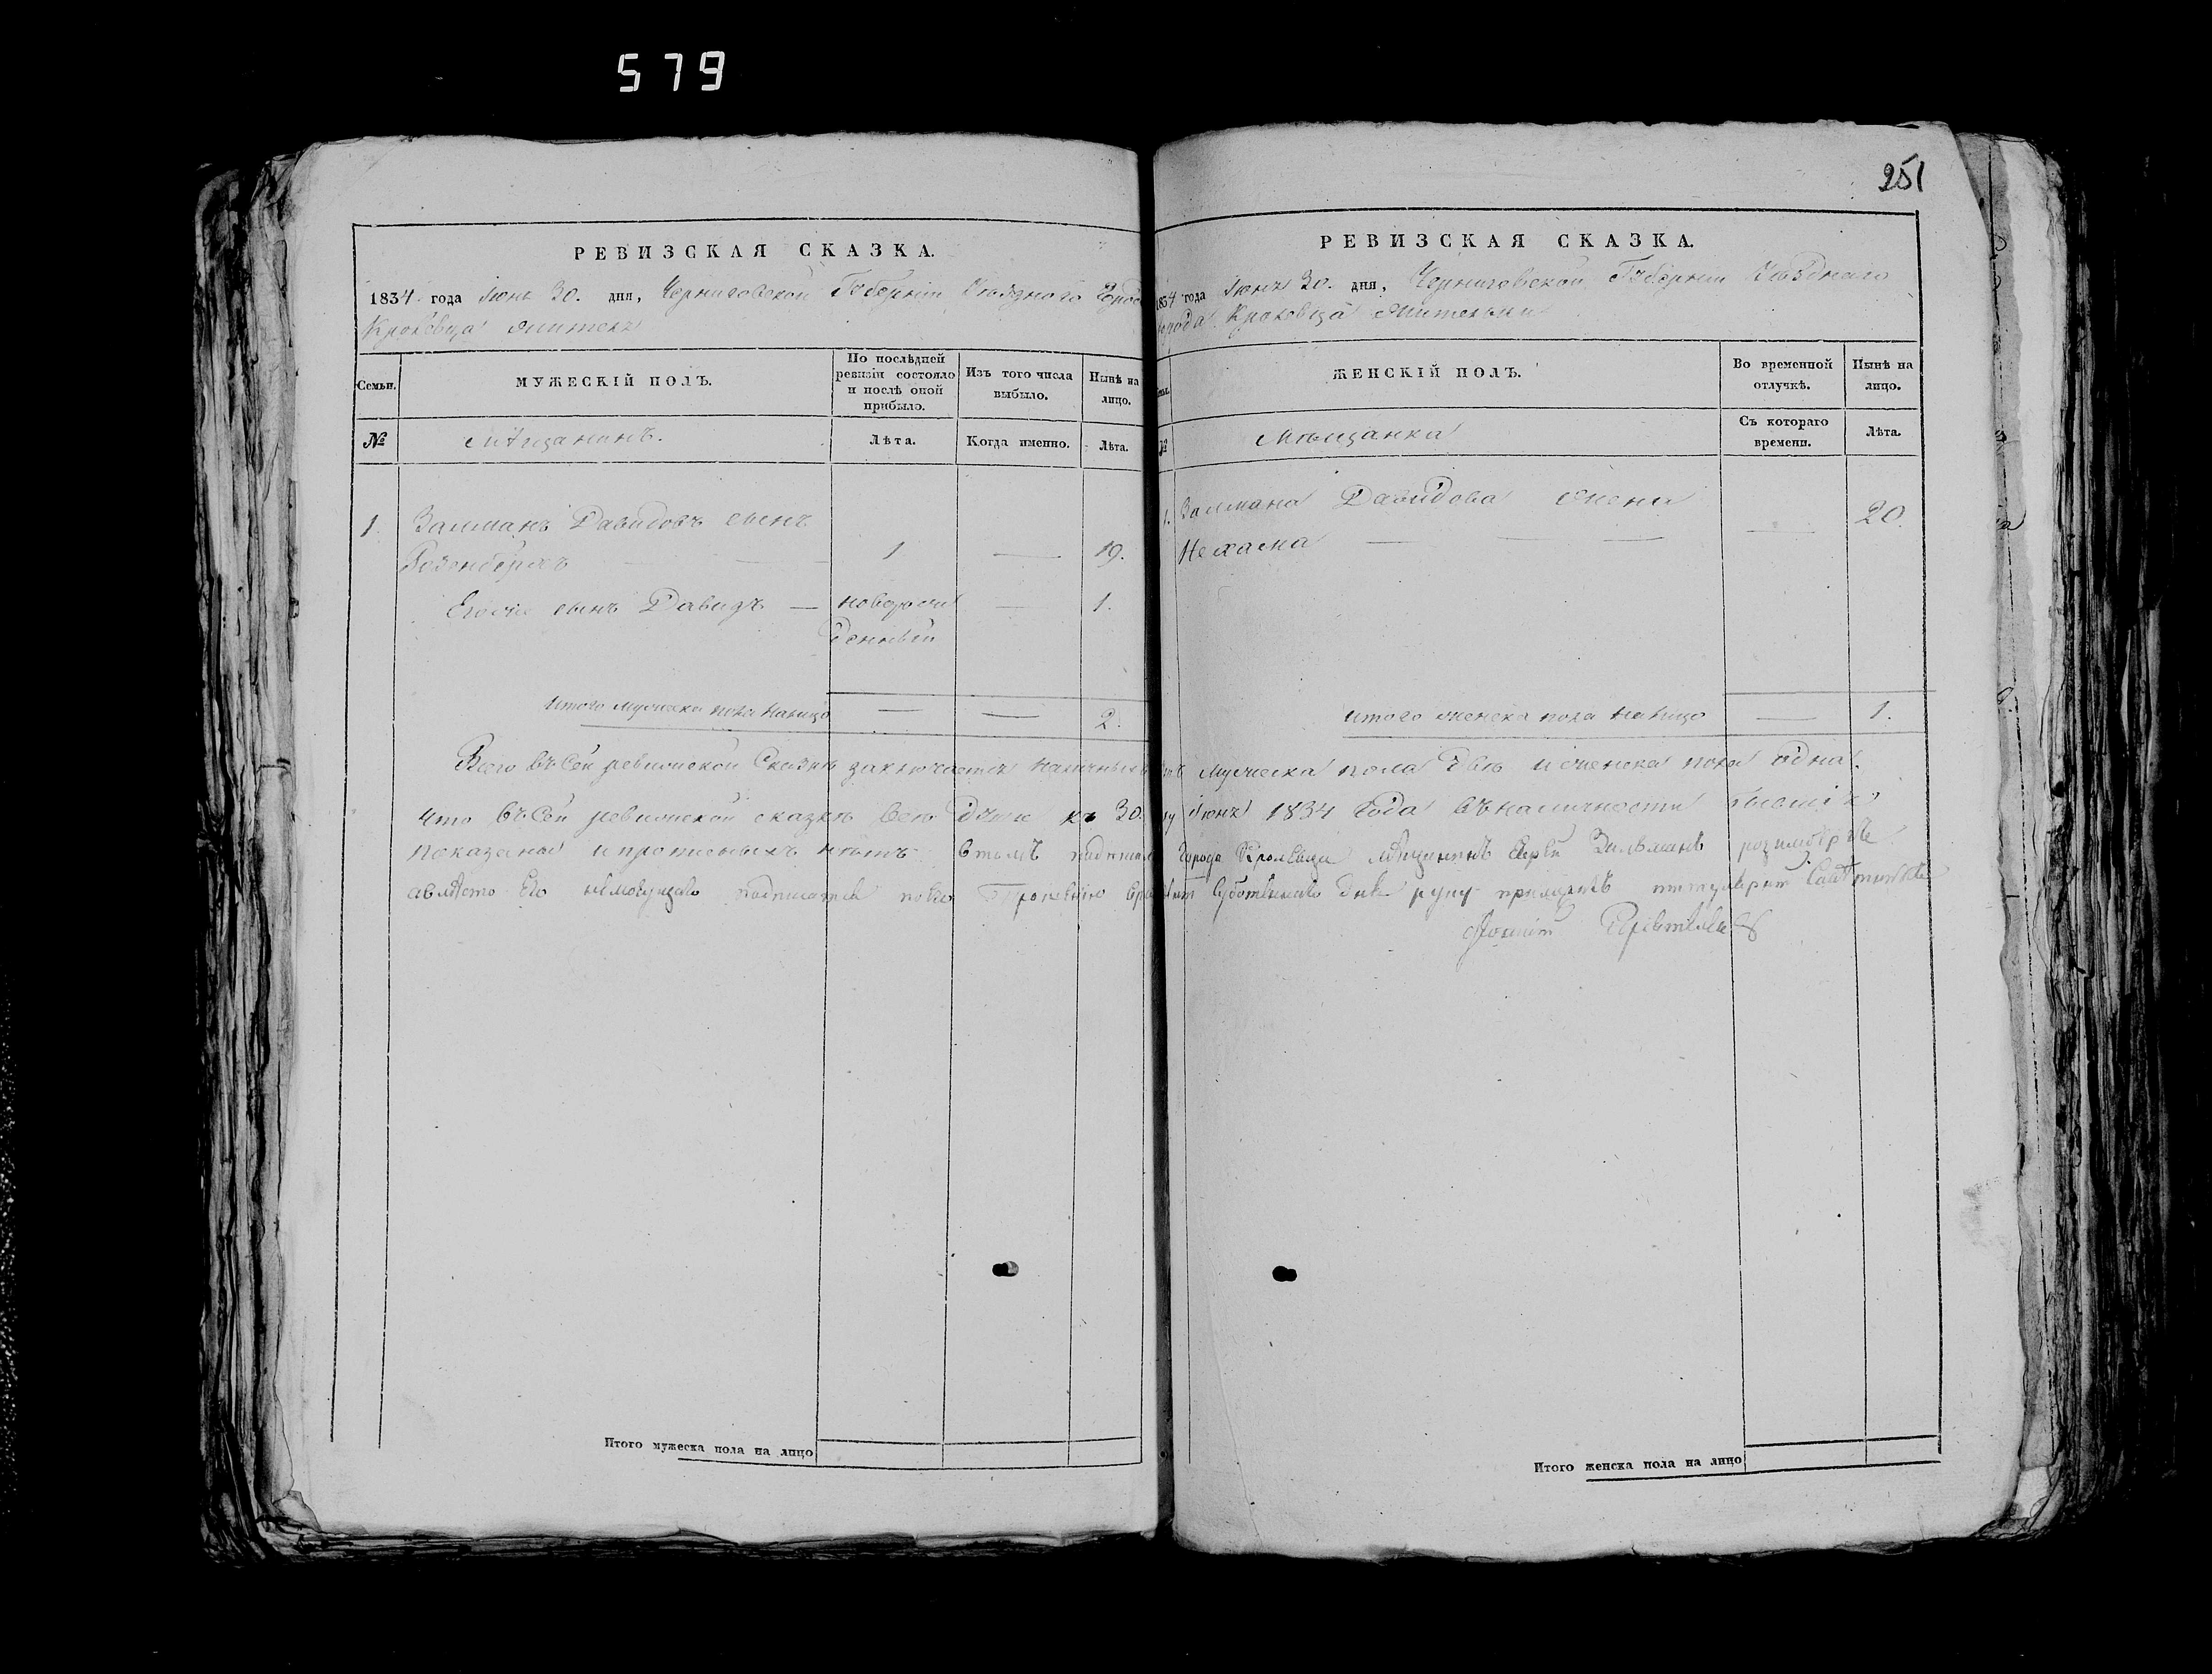 579
251
РЕВИЗСКАЯ СКАЗКА.
1834 года Іюня 30. дня, Черниговской Губерніи Уѣзднаго Города
Кролевца жителя
Семьи.
МУЖЕСКІЙ ПОЛЪ.
По послѣдней ревизіи состояло и послѣ оной прибыло.
Изъ того числа выбыло.
Нынѣ на лицо.
№
Мѣщанинъ.
Лѣта.
Когда именно.
Лѣта.
1. Залманъ Давидовъ сынъ
Розенберхъ — — 1 — 19.
Его же сынъ Давидъ — новорож
денный — 1.
итого мужеска пола налицо — — 2.
РЕВИЗСКАЯ СКАЗКА.
1834 года Іюня 30. дня, Черниговской Губерніи Уѣзднаго
города Кролевца жительки
ЖЕНСКІЙ ПОЛЪ.
Во временной отлучкѣ.
Нынѣ на лицо.
№
Мѣщанка
Съ котораго времени.
Лѣта.
1. Залмана Давидова жена
Нехама — — — — 20.
итого женска пола налицо — 1.
Всего въ сей ревизской сказкѣ заключается наличныхъ мужеска пола двѣ и женска пола одна.
что въ сей ревизской сказкѣ все души къ 30. Іюня 1834 года въ наличности
показана и прописныхъ нѣтъ в томъ города Кролевца мѣщанинъ еврей Залманъ
авмѣсто его немогущаго подписатся по его прошению руку приложилъ
Итого мужеска пола на лицо
Итого женска пола на лицо